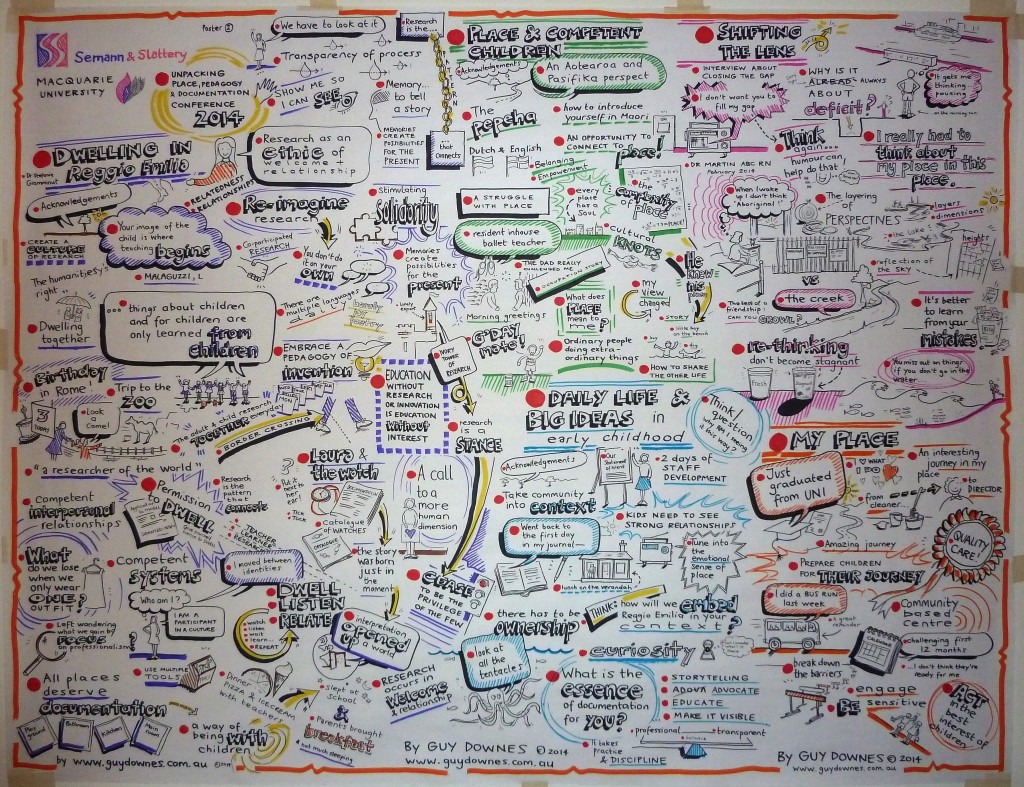 Poster 2
Semann & Slattery
MACQUARIE
UNIVERSITY
UNPACKING
PLACE, PEDAGOGY
& DOCUMENTATION
CONFERENCE
2014
We have to look at it
Transparency of process
SHOW ME SO
I CAN SEE
Memory...
to tell
a story
MEMORIES
CREATE
POSSIBILITIES
FOR THE
PRESENT
Research
is the...
that
connects
DWELLING IN
Reggio Emilia
Acknowledgements
Research as an
ethic of
welcome +
relationship
RELATEDNESS
RELATIONSHIPS
Your image of the
child is where
teaching begins
MALAGUZZI, L
CREATE A
CULTURE
OF RESEARCH
The humanity's
right
Dwelling
together
Re-imagine
research
Co-participated
RESEARCH
You don't do
it on your
OWN
Stimulating
Solidarity
Memories
create
possibilities
for the
present
There are
multiple languages
... things about children
and for children are
only learned from
children
EMBRACE A
PEDAGOGY OF
invention
IVORY
TOWER OF
RESEARCH
EDUCATION
WITHOUT
RESEARCH
OR INNOVATION
IS EDUCATION
without
INTEREST
research
is a
STANCE
Birthday
in Rome!
Trip to the
ZOO
Look
I Come!
The adult & child research
TOGETHER everyday
BORDER CROSSING
"a researcher of the world"
Competent
interpersonal
relationships
Permission
to
DWELL
Research
is the
pattern
that
connects
TEACHER
LEARNER
RESEARCHER
Laura &
the watch
Put it
to
her
ear!
TICK
TOCK
Catalogue
of WATCHES
the story
was born
just in
the
moment
A call
to a
more
human
dimension
What
do we lose
when we
only wear
ONE?
OUTFIT
Competent
systems
I moved between
identities
Who am I?
I AM A
PARTICIPANT
IN A CULTURE
DWELL
LISTEN
RELATE
watch
listen
wait
learn...
REPEAT
interpretation
opened
up a world
CEASE
TO BE THE
PRIVILEGE
OF THE FEW
Left wandering
what we gain by
FOCUS
on professionalism?
USE MULTIPLE
TOOLS
Dinner
PIZZA & ICECREAM
with teachers
slept at
school
&
Parents brought
breakfast
not much sleeping
RESEARCH
OCCURS IN
welcome
& relationship
All places
deserve
documentation
Play
ground
Bathroom
Kitchen
Main
room
a way of
being with
children
by www.guydownes.com.au © 2014
PLACE & COMPETENT
CHILDREN
Acknowledgements
An Aotearoa and
Pasifika perspect
The
pepeha
Dutch & English
how to introduce
yourself in Maori
AN OPPORTUNITY TO
CONNECT TO
place!
Belonging
Empowerment
A STRUGGLE
WITH PLACE
every
place
has a
SOUL
the
complexity
of place
resident inhouse
ballet teacher
cultural
KNOTS
THE DAD REALLY
CHALLENGED ME
OCCUPATION STORY
Morning greetings
G'DAY
MATE!
What does
PLACE
mean to
me?
my
view
changed
STORY
He
knew
his
place
little boy
on the bench
Ordinary people
doing extra-
ordinary things
buy
try
HOW TO SHARE
THE OTHER LIFE
DAILY LIFE &
BIG IDEAS in
early childhood
Think /
Question
Why am I seeing
it this way?
Acknowledgements
Our
Statement
of Intent
2 days of
STAFF
DEVELOPMENT
Take community
into
context
KIDS NEED TO SEE
STRONG RELATIONSHIPS
Went back to
the first day
in my journal
Tune into
the
emotional
sense of
place
lunch on the verandah
there has to be
ownership
THINK:
how will we embed
Reggio Emilia in your
context?
look at
all the
tentacles
curiosity
What is the
essence
of documentation
for YOU?
STORYTELLING
ADVOCATE
EDUCATE
MAKE IT VISIBLE
professional
transparent
It takes
practice
& DISCIPLINE
BY GUY DOWNES © 2014
www.guydownes.com.au
SHIFTING
THE LENS
INTERVIEW ABOUT
CLOSING THE GAP
I don't want you to
fill my gap
DR MARTIN ABC RN
February 2014
WHY IS IT
ALREADY ALWAYS
ABOUT
deficit?
It gets me
thinking
pausing
Think
again...
humour can
help do that
I really had to
think about
my place in this
place.
When I wake
up I don't think
Aboriginal!
The layering
of
PERSPECTIVES
layers
dimensions
the lake
heights
reflection of
the SKY
VS
the creek
The test of a
friendship:
CAN YOU GROWL?
It's better
to learn
from your
MISTAKES
re-thinking
don't become stagnant
fresh
You miss out on things
if you don't go in the
water
MY PLACE
Just
graduated
from UNI
I ♥ WHAT
I DO
An interesting
journey in my
place
from
cleaner...
to
DIRECTOR
Amazing journey
QUALITY
CARE!
PREPARE CHILDREN
FOR THEIR JOURNEY
I did a BUS RUN
last week
a great
reminder
Community
based
centre
Calendar
challenging first
12 months
...I don't think they're
ready for me
break down
the barriers
engage
BE sensitive
ACT
in the
best
interest of
children
BY GUY DOWNES © 2014
www.guydownes.com.au